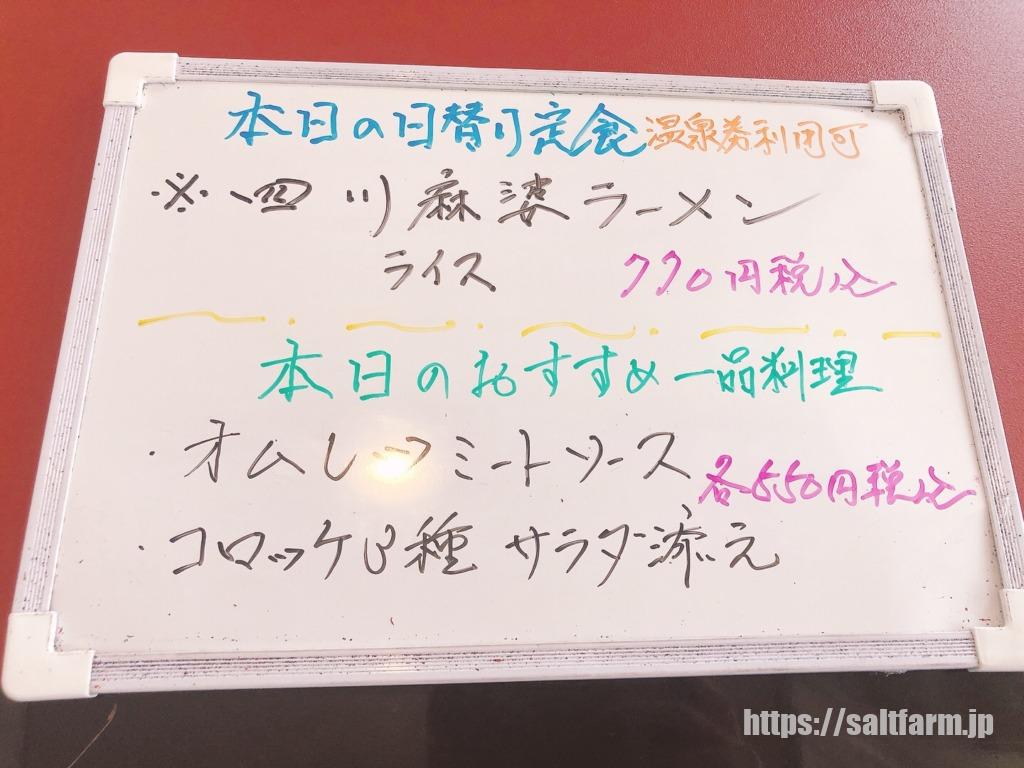 本日の日替り定食 温泉券利用可
※四川麻婆ラーメン
ライス 770円税込
本日のおすすめ一品料理
・オムレツミートソース
各550円税込
・コロッケ3種 サラダ添え
https://saltfarm.jp